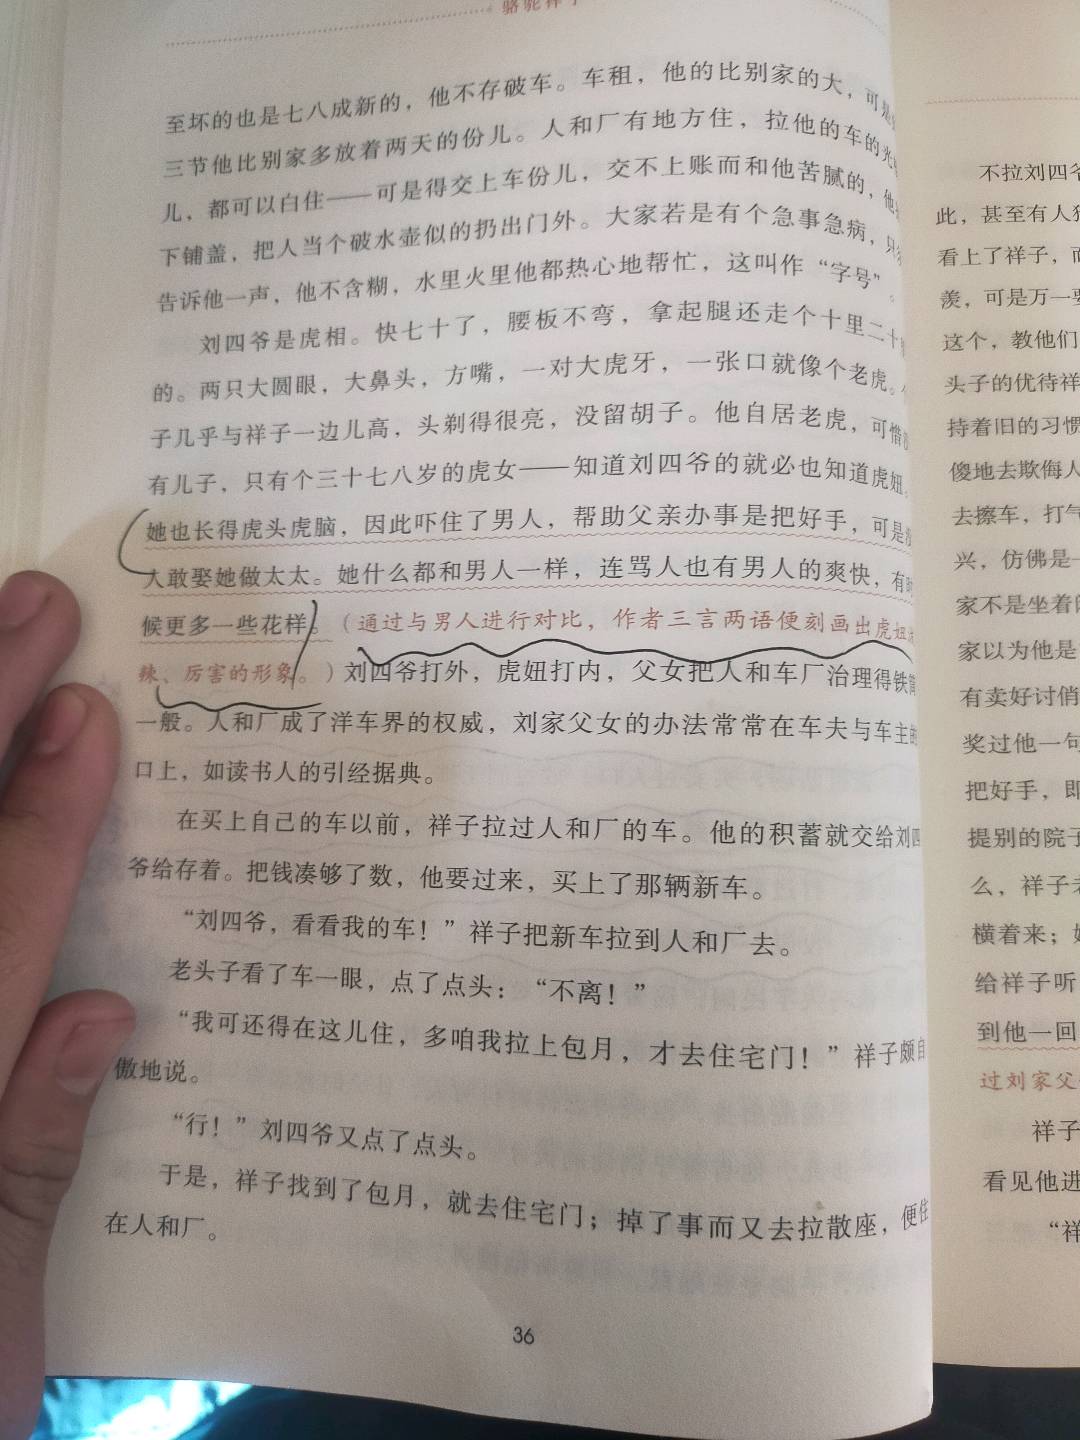 骆驼祥子
至坏的也是七八成新的，他不存破车。车租，他的比别家的大，可是
三节他比别家多放着两天的份儿。人和厂有地方住，拉他的车的光
儿，都可以白住——可是得交上车份儿，交不上账而和他苦腻的，他
下铺盖，把人当个破水壶似的扔出门外。大家若是有个急事急病，只
告诉他一声，他不含糊，水里火里他都热心地帮忙，这叫作“字号”。
刘四爷是虎相。快七十了，腰板不弯，拿起腿还走个十里二十
的。两只大圆眼，大鼻头，方嘴，一对大虎牙，一张口就像个老虎。
子几乎与祥子一边儿高，头剃得很亮，没留胡子。他自居老虎，可惜
有儿子，只有个三十七八岁的虎女——知道刘四爷的就必也知道虎妞。
她也长得虎头虎脑，因此吓住了男人，帮助父亲办事是把好手，可是没
人敢娶她做太太。她什么都和男人一样，连骂人也有男人的爽快，有时
候更多一些花样。（通过与男人进行对比，作者三言两语便刻画出虎妞
辣、厉害的形象。）刘四爷打外，虎妞打内，父女把人和车厂治理得铁筒
一般。人和厂成了洋车界的权威，刘家父女的办法常常在车夫与车主的
口上，如读书人的引经据典。
在买上自己的车以前，祥子拉过人和厂的车。他的积蓄就交给刘四
爷给存着。把钱凑够了数，他要过来，买上了那辆新车。
“刘四爷，看看我的车！”祥子把新车拉到人和厂去。
老头子看了车一眼，点了点头：“不离！”
“我可还得在这儿住，多咱我拉上包月，才去住宅门！”祥子颇自
傲地说。
“行！”刘四爷又点了点头。
于是，祥子找到了包月，就去住宅门；掉了事而又去拉散座，便住
在人和厂。
36
不拉刘四爷
此，甚至有人
看上了祥子，而
羡，可是万一要
这个，教他们
头子的优待祥
持着旧的习惯
傻地去欺侮人
去擦车，打气
兴，仿佛是
家不是坐着
家以为他是
有卖好讨俏
奖过他一句
把好手，即
提别的院子
么，祥子
横着来；
给祥子听
到他一回
过刘家父
祥子
看见他进
“祥